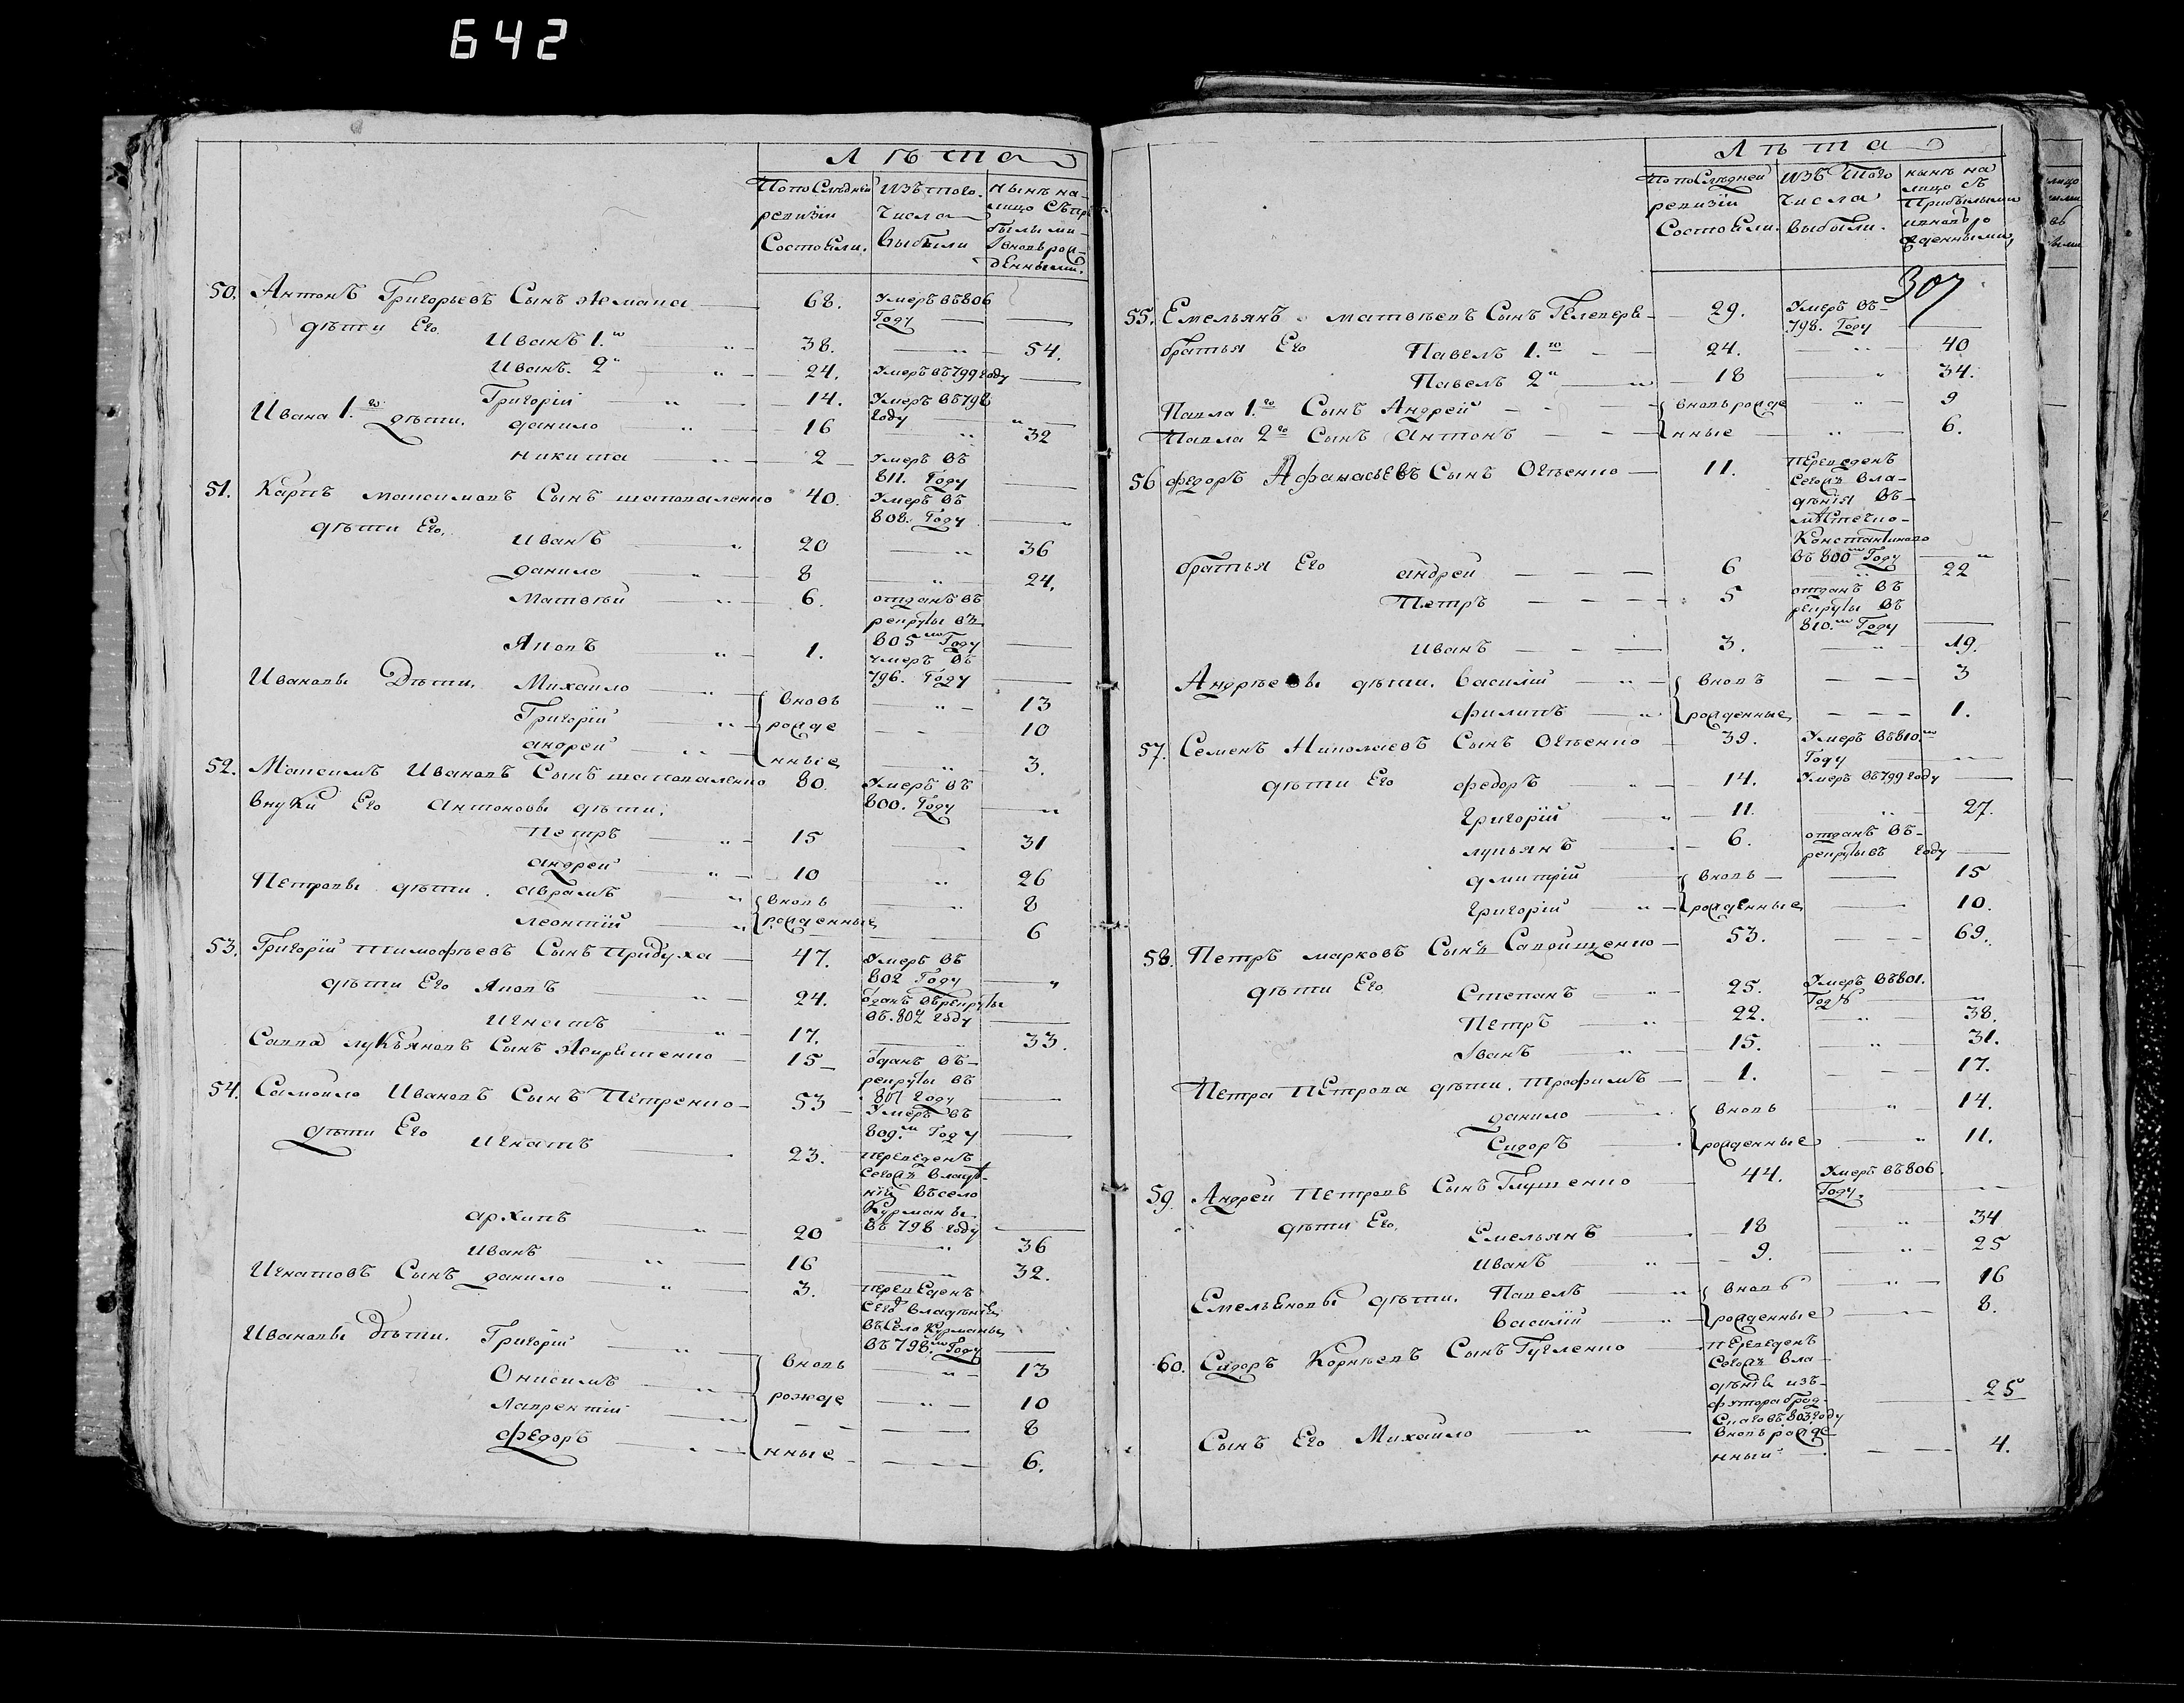 642
Лѣта
По последнѣй ревизіи Состояли.
Изъ того числа выбыли
Нынѣ на лицо съ при былыми вновь рож денными.
50. Антонъ Григорьевъ Сынъ 68. Умеръ въ 806 Году —
дѣти Его Иванъ 1.й 38. — 54.
Иванъ 2й 24. Умеръ въ 799 году —
Григорій 14. Умеръ въ 798 году —
Ивана 1.го дѣти. данило 16 — 32
никита 2 Умеръ въ 811. Году —
51. Карпъ максимовъ Сынъ шаповаленко 40. Умеръ въ 808. Году —
дѣти Его. Иванъ 20 — 36
данило 8 — 24.
Матвѣй 6. отданъ въ рекруты въ 805м Году —
Яковъ 1. умеръ въ 796. Году —
Ивановы Дѣти. Михайло вновь — 13
Григорій рожде — 10
андрей нные — 3.
52. Максимъ Ивановъ Сынъ шаповаленко 80. Умеръ въ 800. Году —
внуки Его Антоновы дѣти.
Петръ 15 — 31
андрей 10 — 26
Петровы дѣти. аврамъ вновь — 8
леонтій рожденные — 6
53. Григорій тимофѣевъ Сынъ Придуха 47. Умеръ въ 802 Году —
дѣти Его Яковъ 24. ѿданъ въ рекруты въ. 807 году —
Игнатъ 17. — 33.
Савва лукьяновъ Сынъ 15 ѿданъ въ рекруты въ 807 году —
54. Самойло Ивановъ Сынъ Петренко 53 Умеръ въ 809.м Году —
дѣти Его Игнатъ 23. переведенъ сегожъ владѣ нія въ село Курманы въ 798 году —
архипъ 20 — 36
Иванъ 16 — 32.
Игнатовъ Сынъ данило 3. переведенъ сегожъ владѣнія въ село Курманы въ 798.м Году —
Ивановы Дѣти. Григорій вновь — 13
Онисимъ рожде — 10
Лаврентій — 8
Федоръ нные — 6.
Лѣта
По последней ревизіи Состояли.
изъ того числа выбыли.
нынѣ на лицо съ прибылыми и вновь ро жденными,
307
55. Емельянъ матвѣевъ Сынъ 29. Умеръ въ 798. Году —
братья Его Павелъ 1.й 24. — 40
Павелъ 2й 18 — 34.
Павла 1.го Сынъ Андрей вновь рожде — 9
Павла 2го Сынъ Антонъ нные — 6.
56 Федоръ Афанасьевъ Сынъ 11. переведенъ сегожъ вла дѣнія въ мѣстечко Константиново въ 800м Году —
братья Его андрей 6 — 22
Петръ 5 отданъ въ рекруты въ 810.м Году —
иванъ 3. — 19.
Андрѣевы дѣти. василій вновь — 3
филипъ рожденные — 1.
57. Семенъ Николаевъ Сынъ 39. Умеръ въ 810.м Году —
дѣти Его федоръ 14. Умеръ въ 799 году —
григорій 11. — 27.
лукьянъ 6. отданъ въ рекруты въ году —
дмитрій вновь — 15
григорій рожденные — 10.
58. Петръ марковъ Сынъ 53. — 69.
дѣти Его Степанъ 25. Умеръ въ 801. Году —
Петръ 22. — 38.
Іванъ 15. — 31.
Петра Петрова дѣти. трофимъ 1. — 17.
данило вновь — 14.
Сидоръ рожденные — 11.
59. Андрей Петровъ Сынъ Глущенко 44. Умеръ въ 806. Году. —
дѣти Его. Емельянъ 18 — 34
иванъ 9. — 25
Емельяновы дѣти. Павелъ вновь — 16
василій рожденные — 8.
60. Сидоръ Корнѣевъ Сынъ переведенъ сегожъ вла дѣнія изъ футора въ 803 году — 25
Сынъ Его Михайло вновь рожде нный — 4.